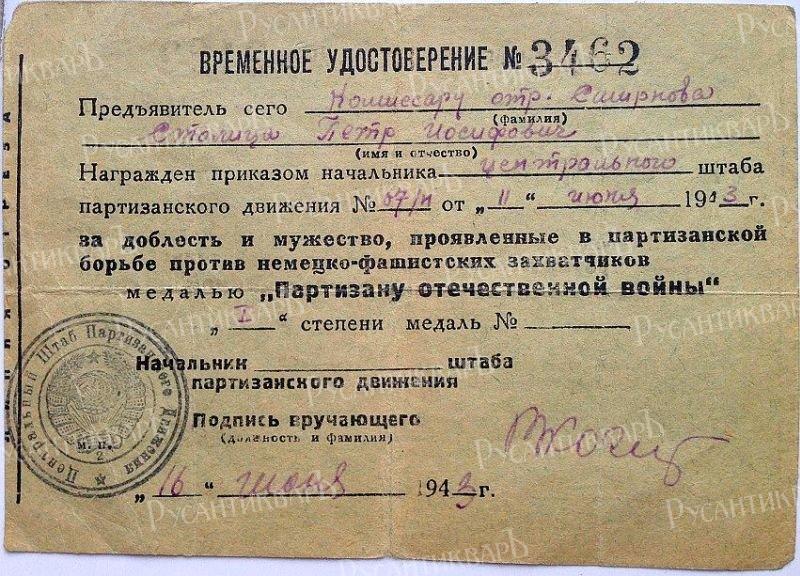 ВРЕМЕННОЕ УДОСТОВЕРЕНИЕ № 3462
Предъявитель сего Комиссару отр. Смирнова
(фамилия)
Столица Петр Иосифович
(имя и отчество)
Награжден приказом начальника центрального штаба
партизанского движения № 67/н от „11“ июня 1943 г.
за доблесть и мужество, проявленные в партизанской
борьбе против немецко-фашистских захватчиков
медалью „Партизану отечественной войны“
„I“ степени медаль №
Начальник штаба
партизанского движения
Подпись вручающего
(должность и фамилия)
„16“ июня 1943 г.
Центральный Штаб Партизанского Движения
м. п.
2
РУСАНТИКВАРЪ